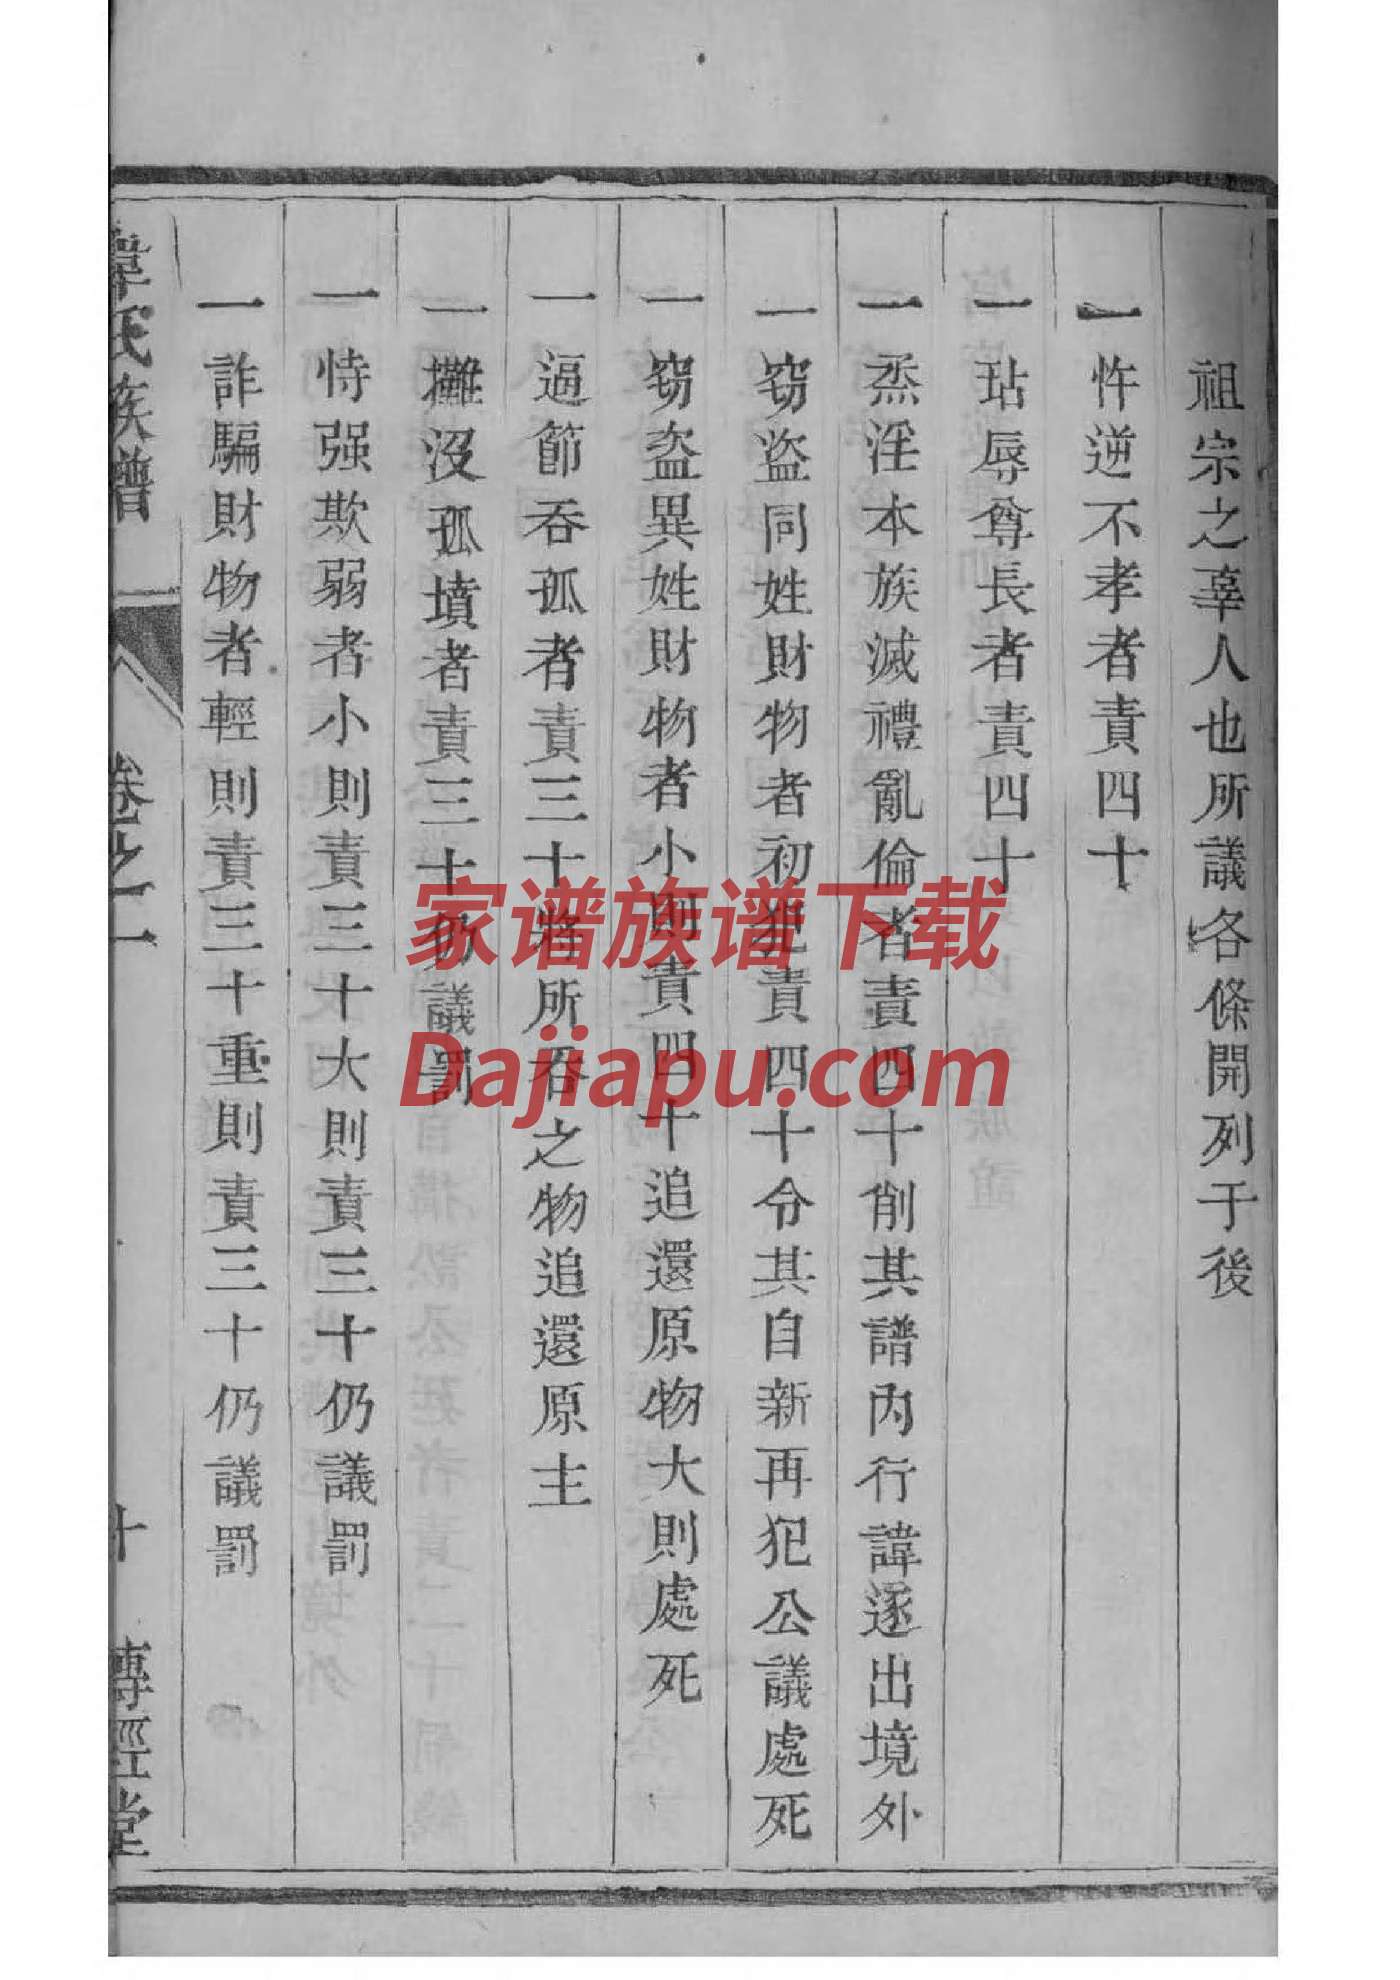 祖宗之辜人也所議各條開列于後
一忤逆不孝者責四十
一玷辱尊長者責四十
一烝淫本族滅禮亂倫者責四十削其譜內行諱逐出境外
一窃盗同姓財物者初犯責四十令其自新再犯公議處死
一窃盗異姓財物者小則責四十追還原物大則處死
一逼節吞孤者責三十將所吞之物追還原主
一攤沒孤墳者責三十仍議罰
一恃强欺弱者小則責三十大則責三十仍議罰
一詐騙財物者輕則責三十重則責三十仍議罰
韋氏族譜 卷之一 十 傳經堂
家谱族谱下载
Dajiapu.com